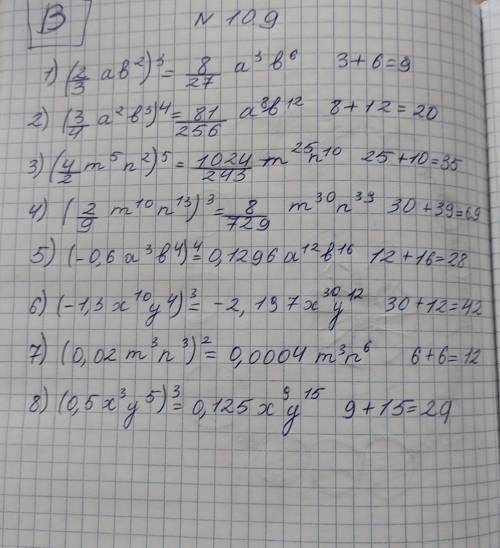 В № 109
1) (2/3 ab²)³ = 8/27 a³b⁶ 3+6=9
2) (3/4 a²b³)⁴ = 81/256 a⁸b¹² 8+12=20
3) (4/2 m⁵n²)⁵ = 1024/243 m²⁵n¹⁰ 25+10=35
4) (2/9 m¹⁰n¹³)³ = 8/729 m³⁰n³⁹ 30+39=69
5) (-0,6a³b⁴)⁴ = 0,1296a¹²b¹⁶ 12+16=28
6) (-1,3x¹⁰y⁴)³ = -2,197x³⁰y¹² 30+12=42
7) (0,02m³n³)² = 0,0004m³n⁶ 6+6=12
8) (0,5x³y⁵)³ = 0,125x⁹y¹⁵ 9+15=29